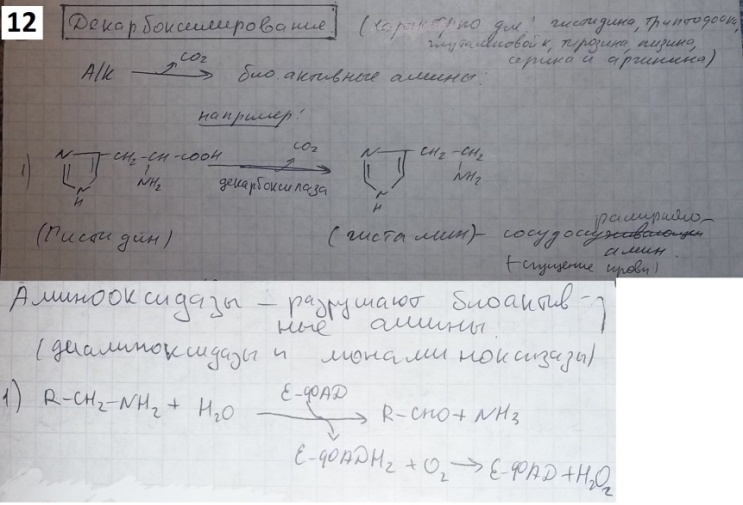 12
Декарбоксилирование (характерно для: гистидина, триптофана,
глутаминовой к, тирозина, лизина,
серина и аргинина)
CO2
А/К → био.активные амины:
например:
1) N CH2-CH-COOH CO2 N CH2-CH2
NH2 декарбоксилаза NH2
N H N H
(Гистидин) (гистамин) - сосудосуживающий
расширяю-
амин.
(+сгущение крови)
Аминооксидазы - разрушают биоактив-
ные амины.
(диаминоксидазы и монаминоксизазы)
1) R-CH2-NH2 + H2O E-ФАД → R-CHO + NH3
E-ФАДH2 + O2 → E-ФАД + H2O2